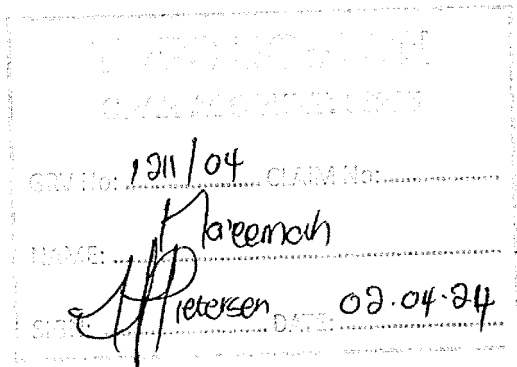 GRV No: 1211/04 CLAIM No:
NAME: Kareemah
SIGN: Pietersen DATE: 02.04.24